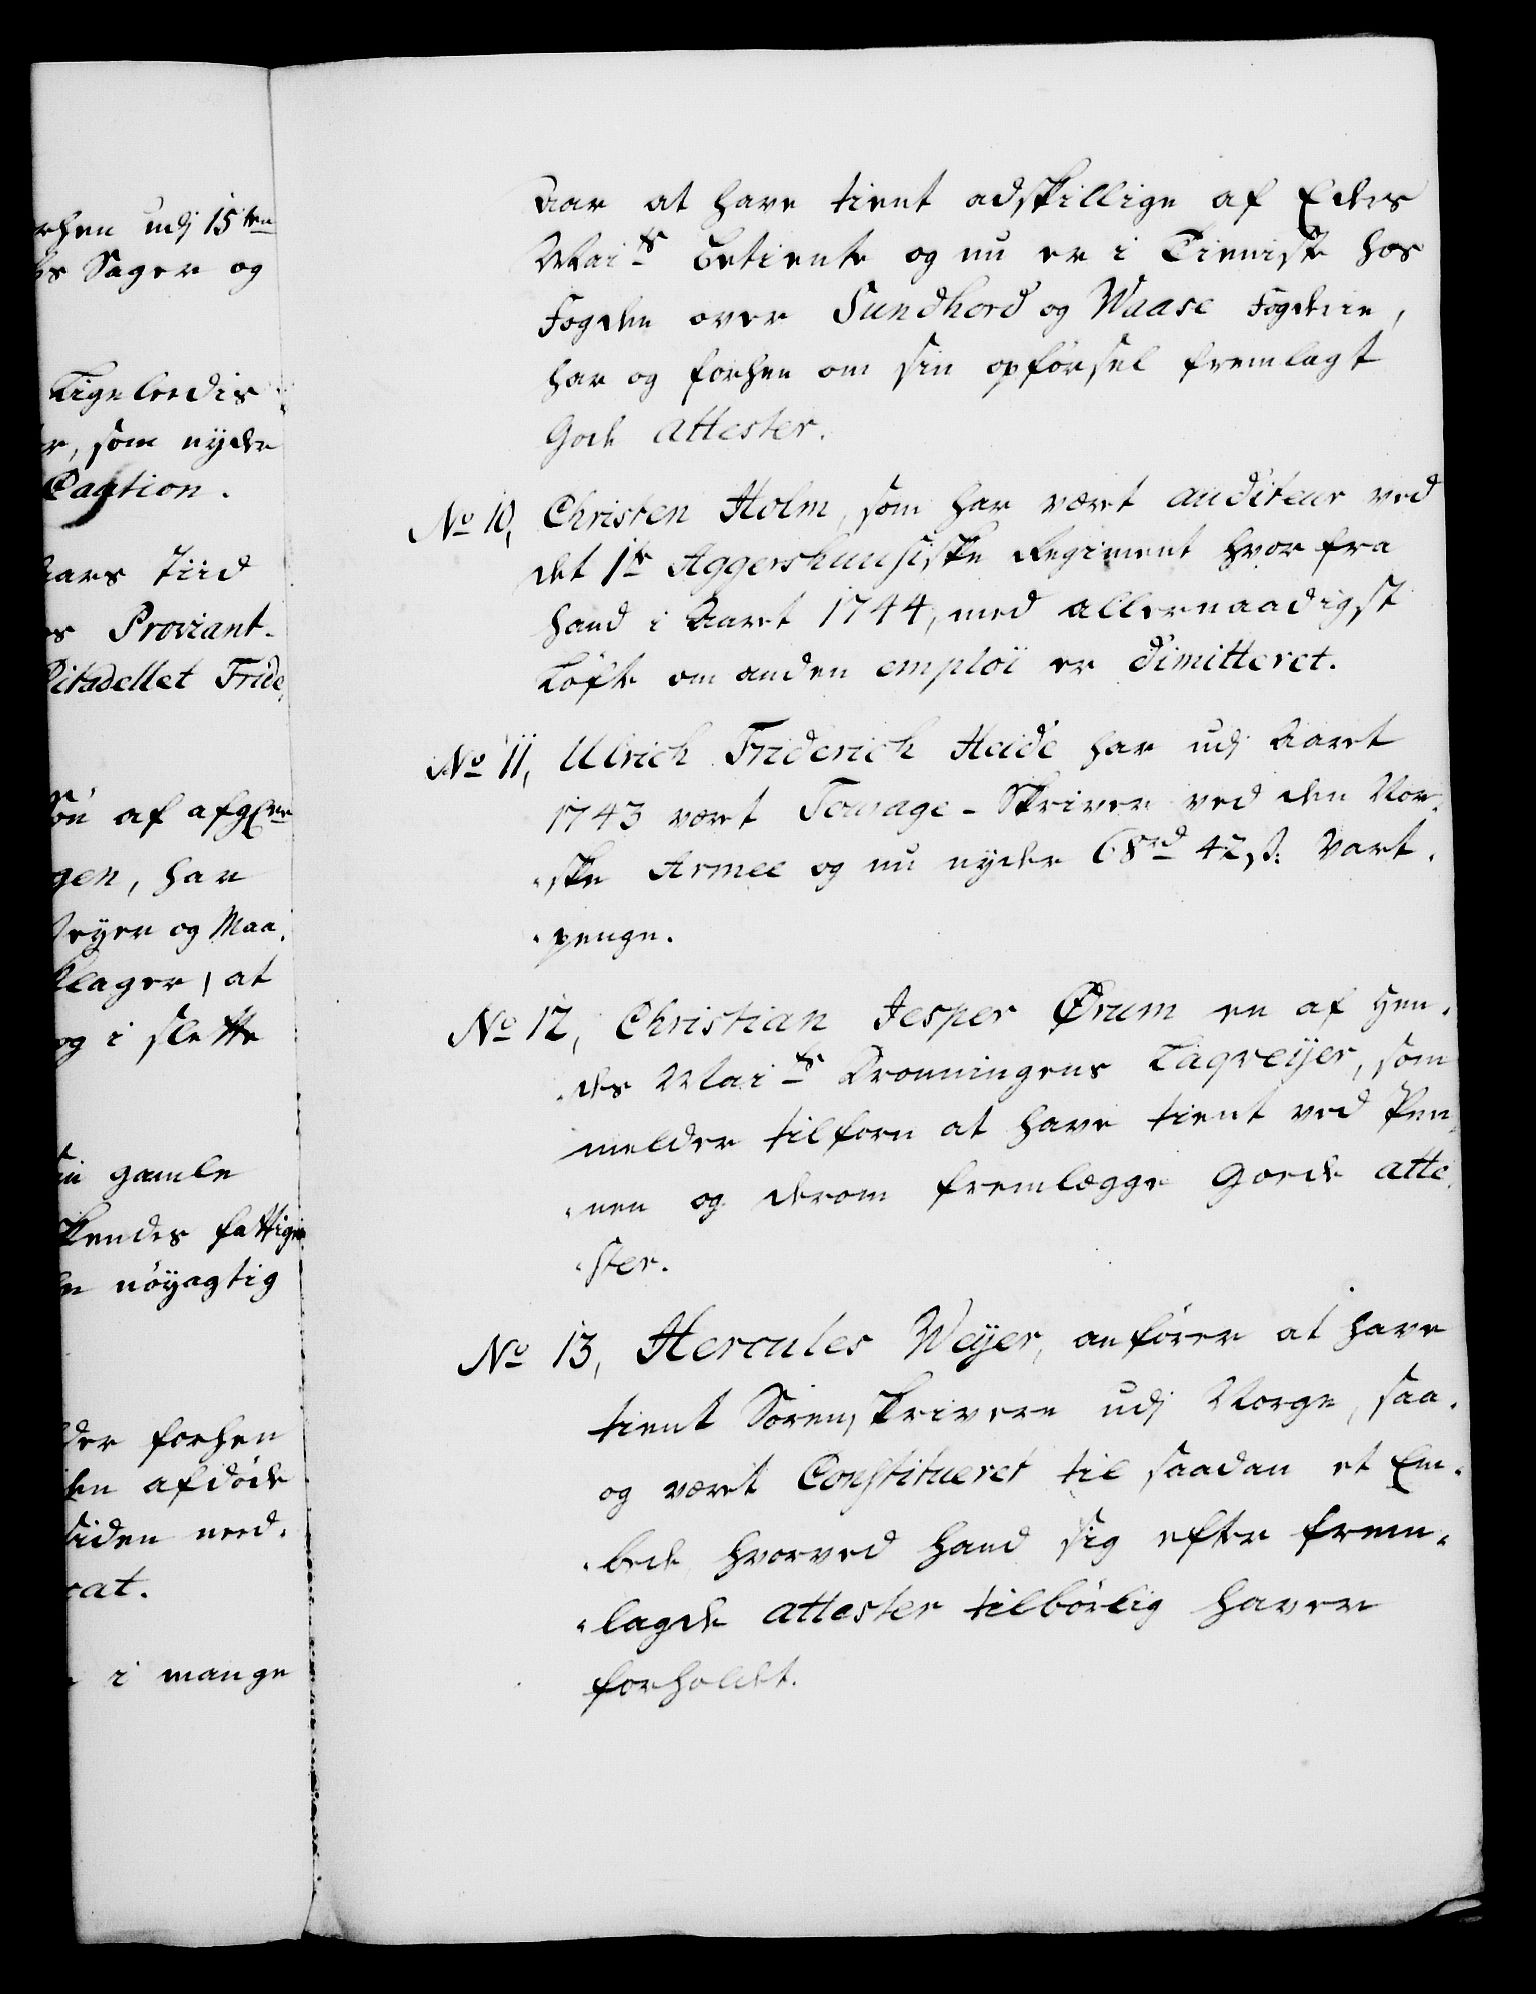 rhen udj 15ten
s Sager og
Ligeleedis
r, som nyde
Caution.
Aars Tiid
es Proviant-
Citadellet Fride,
Søn af afgl
gen, har
eyer og Maa,
klager, at
og i slette
gamle
kendes fattige
n nøyagtig
der forhen
den afdøde
siden need,
cat.
i mange
Aar at have tient adskillige af Eders
Mai:ts Betiente og nu er i Tieniste hos
Fogden over Sundhord og Waase Fogderie,
har og forhen om sin opførsel fremlagt
Gode attester.
No 10, Christen Holm, som har vært auditeur ved
det 1te Aggershuusiske Regiment hvor fra
hand i Aaret 1744, med allernaadigst
Løfte om anden emploi er dimitteret.
No 11, Ulrich Friderich Heide har udj Aaret
1743 vært Fourage-Skriver ved den Nor,
ske Armee og nu nyder 68rd 42 s: Vart,
penge.
No 12, Christian Jesper Ørum en af Hen,
des Mai:ts Dronningens Laqveijer, som
melder tilforn at have tient ved Pen,
nen og derom fremlegge Goede atte,
ster.
No 13, Hercules Weijer, anfører at have
tient Sorenskrivere udj Norge, saa,
og været Constitueret til saadan et Em,
bede, hvorved hand sig efter frem,
lagde attester tilbørlig haver
forholdet.